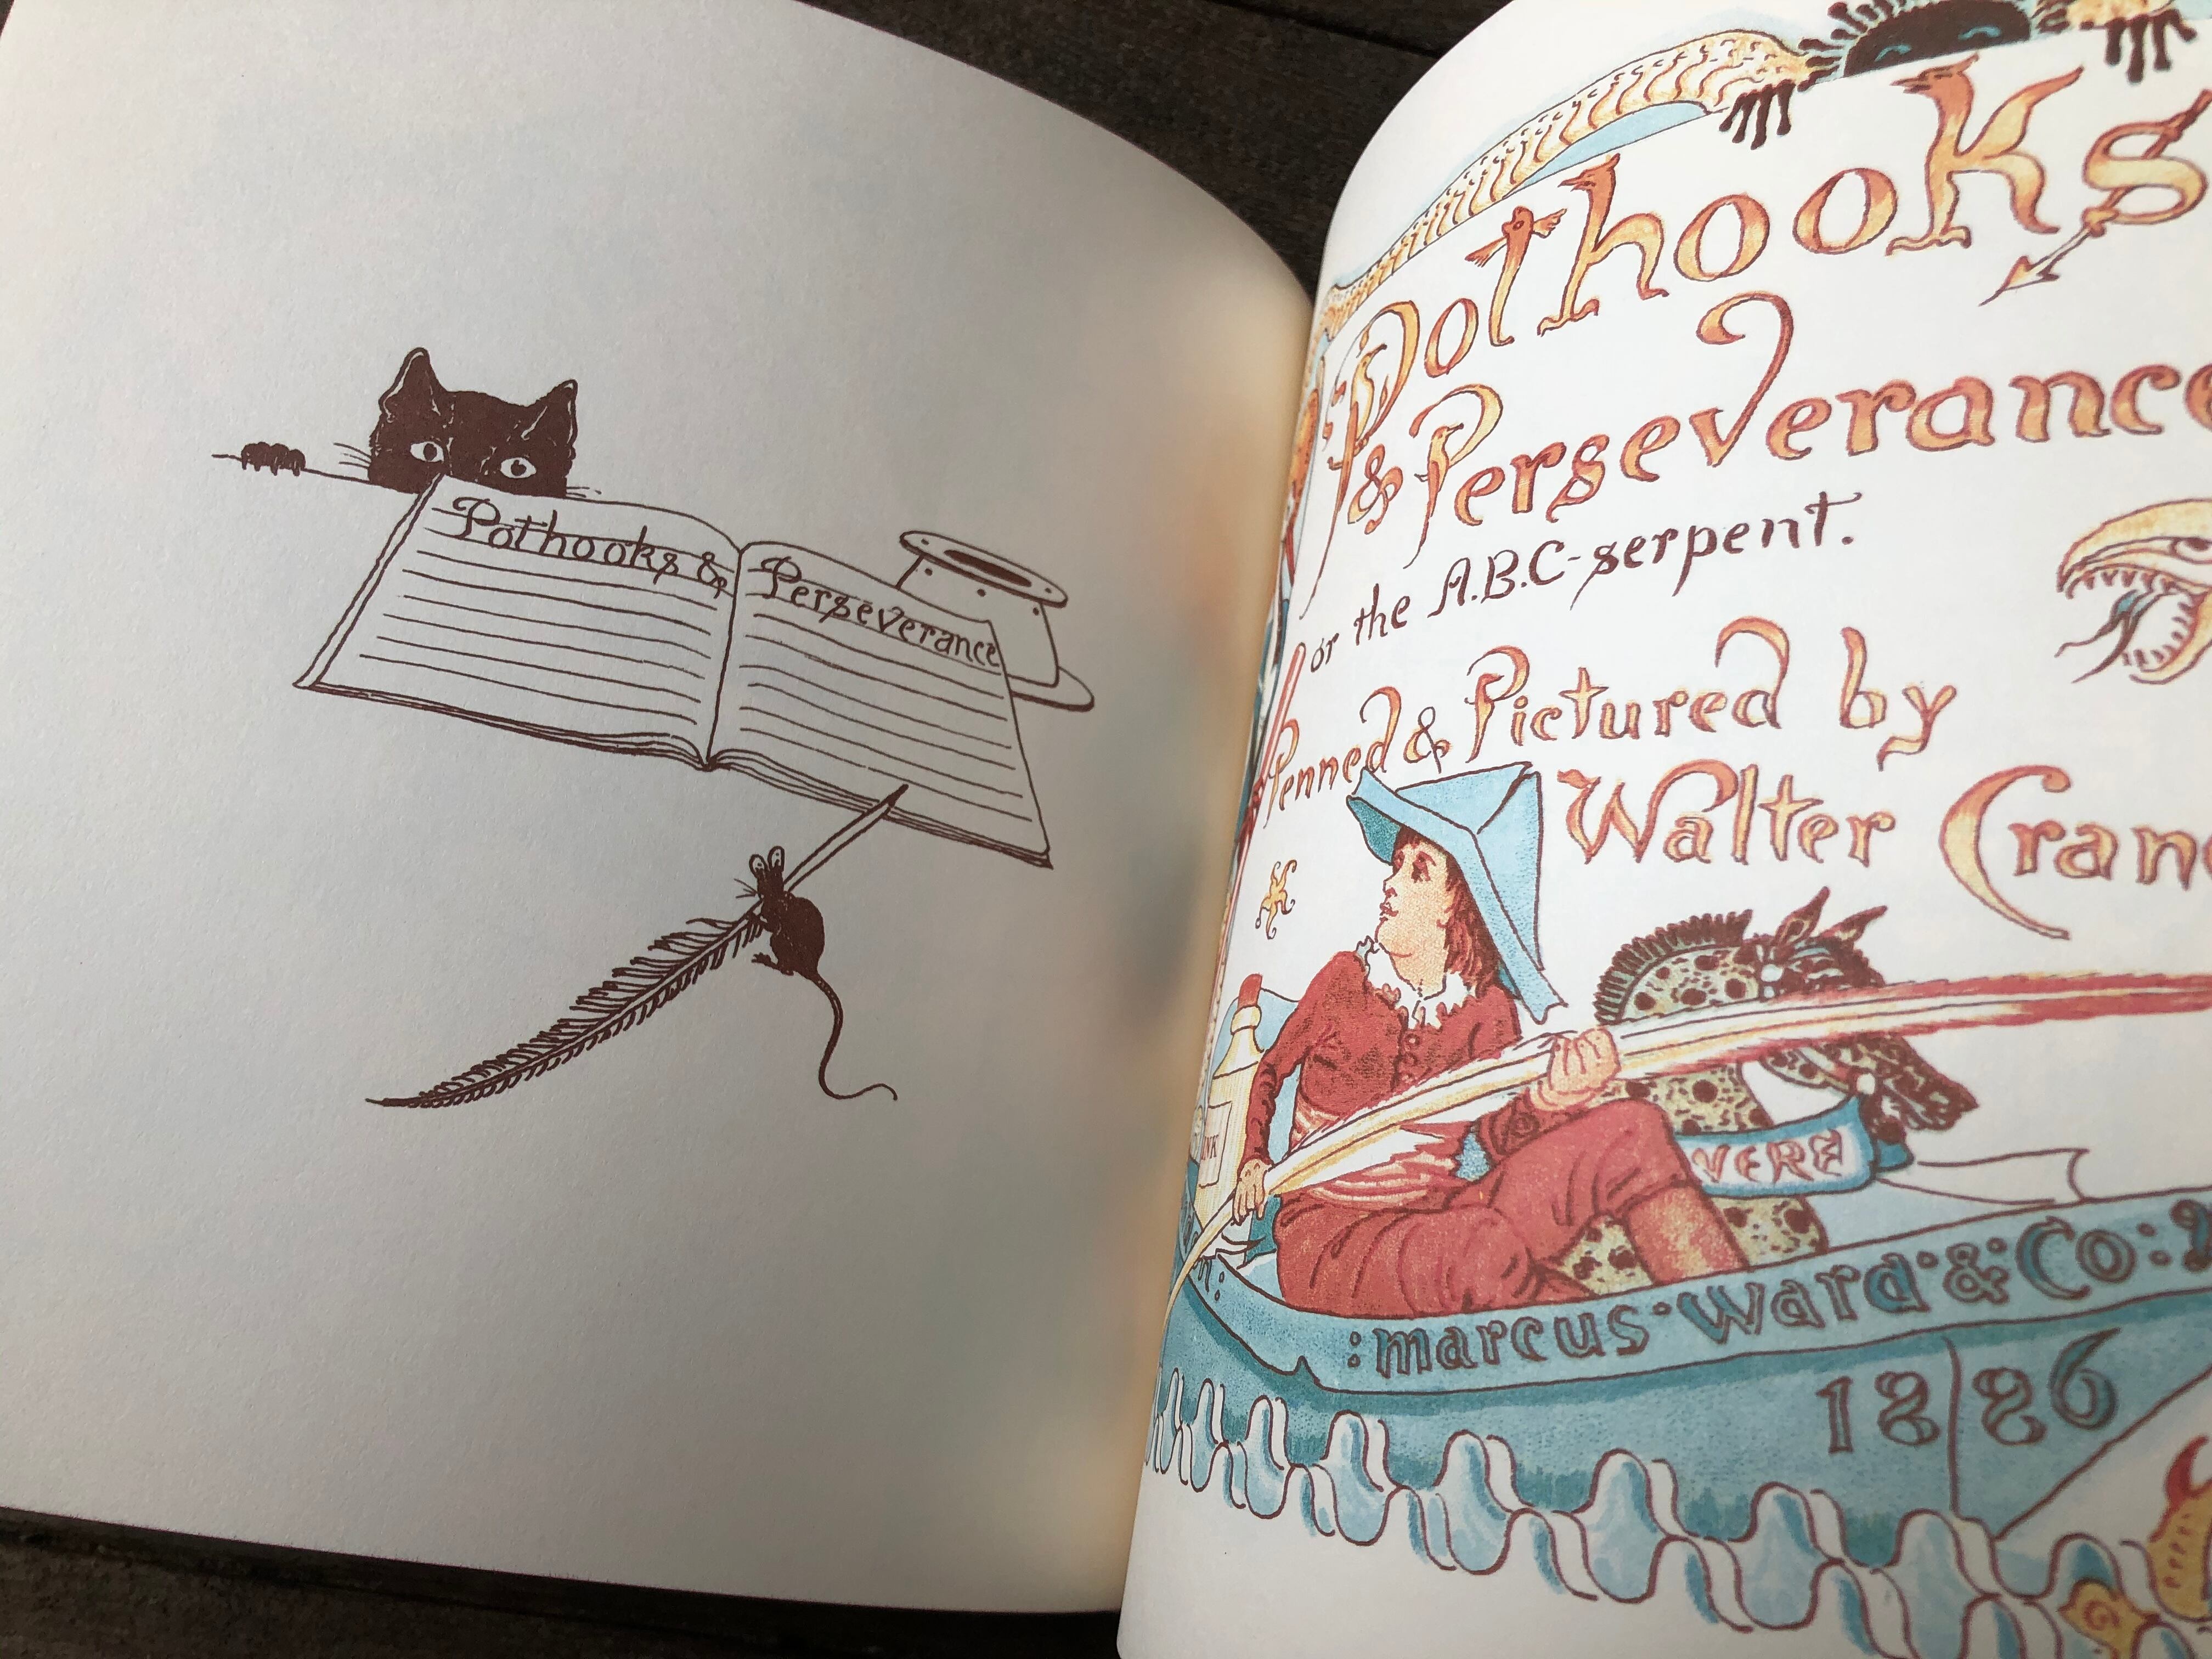 Pothooks & Perseverance
Pothooks
& Perseverance
or the A.B.C-serpent.
Penned & Pictured by
Walter Crane
INK
VERE
:marcus·Ward·&·Co:
1886